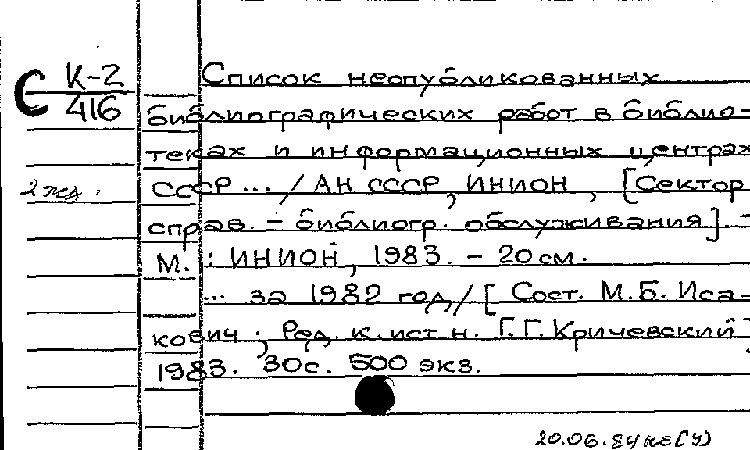 С К-2
416
Список неопубликованных
библиографических работ в библио-
теках и информационных центрах
2 экз.
СССР ... / АН СССР, ИНИОН, [Сектор
справ. - библиогр. обслуживания]. -
М. : ИНИОН, 1983. - 20 см.
... за 1982 год / [Сост. М.Б. Иса-
кович ; Ред. к.ист.н. Г.Г. Кричевский]
1983. 30с. 500 экз.
20.06.84